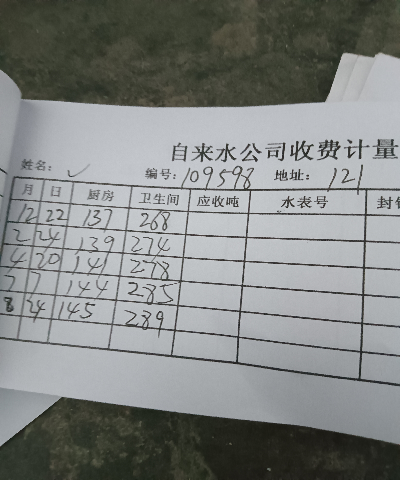 自来水公司收费计量
姓名： 编号：109598 地址：121
月 日 厨房 卫生间 应收吨 水表号
12 22 137 268
2 24 139 274
4 20 141 278
7 7 144 285
8 24 145 289